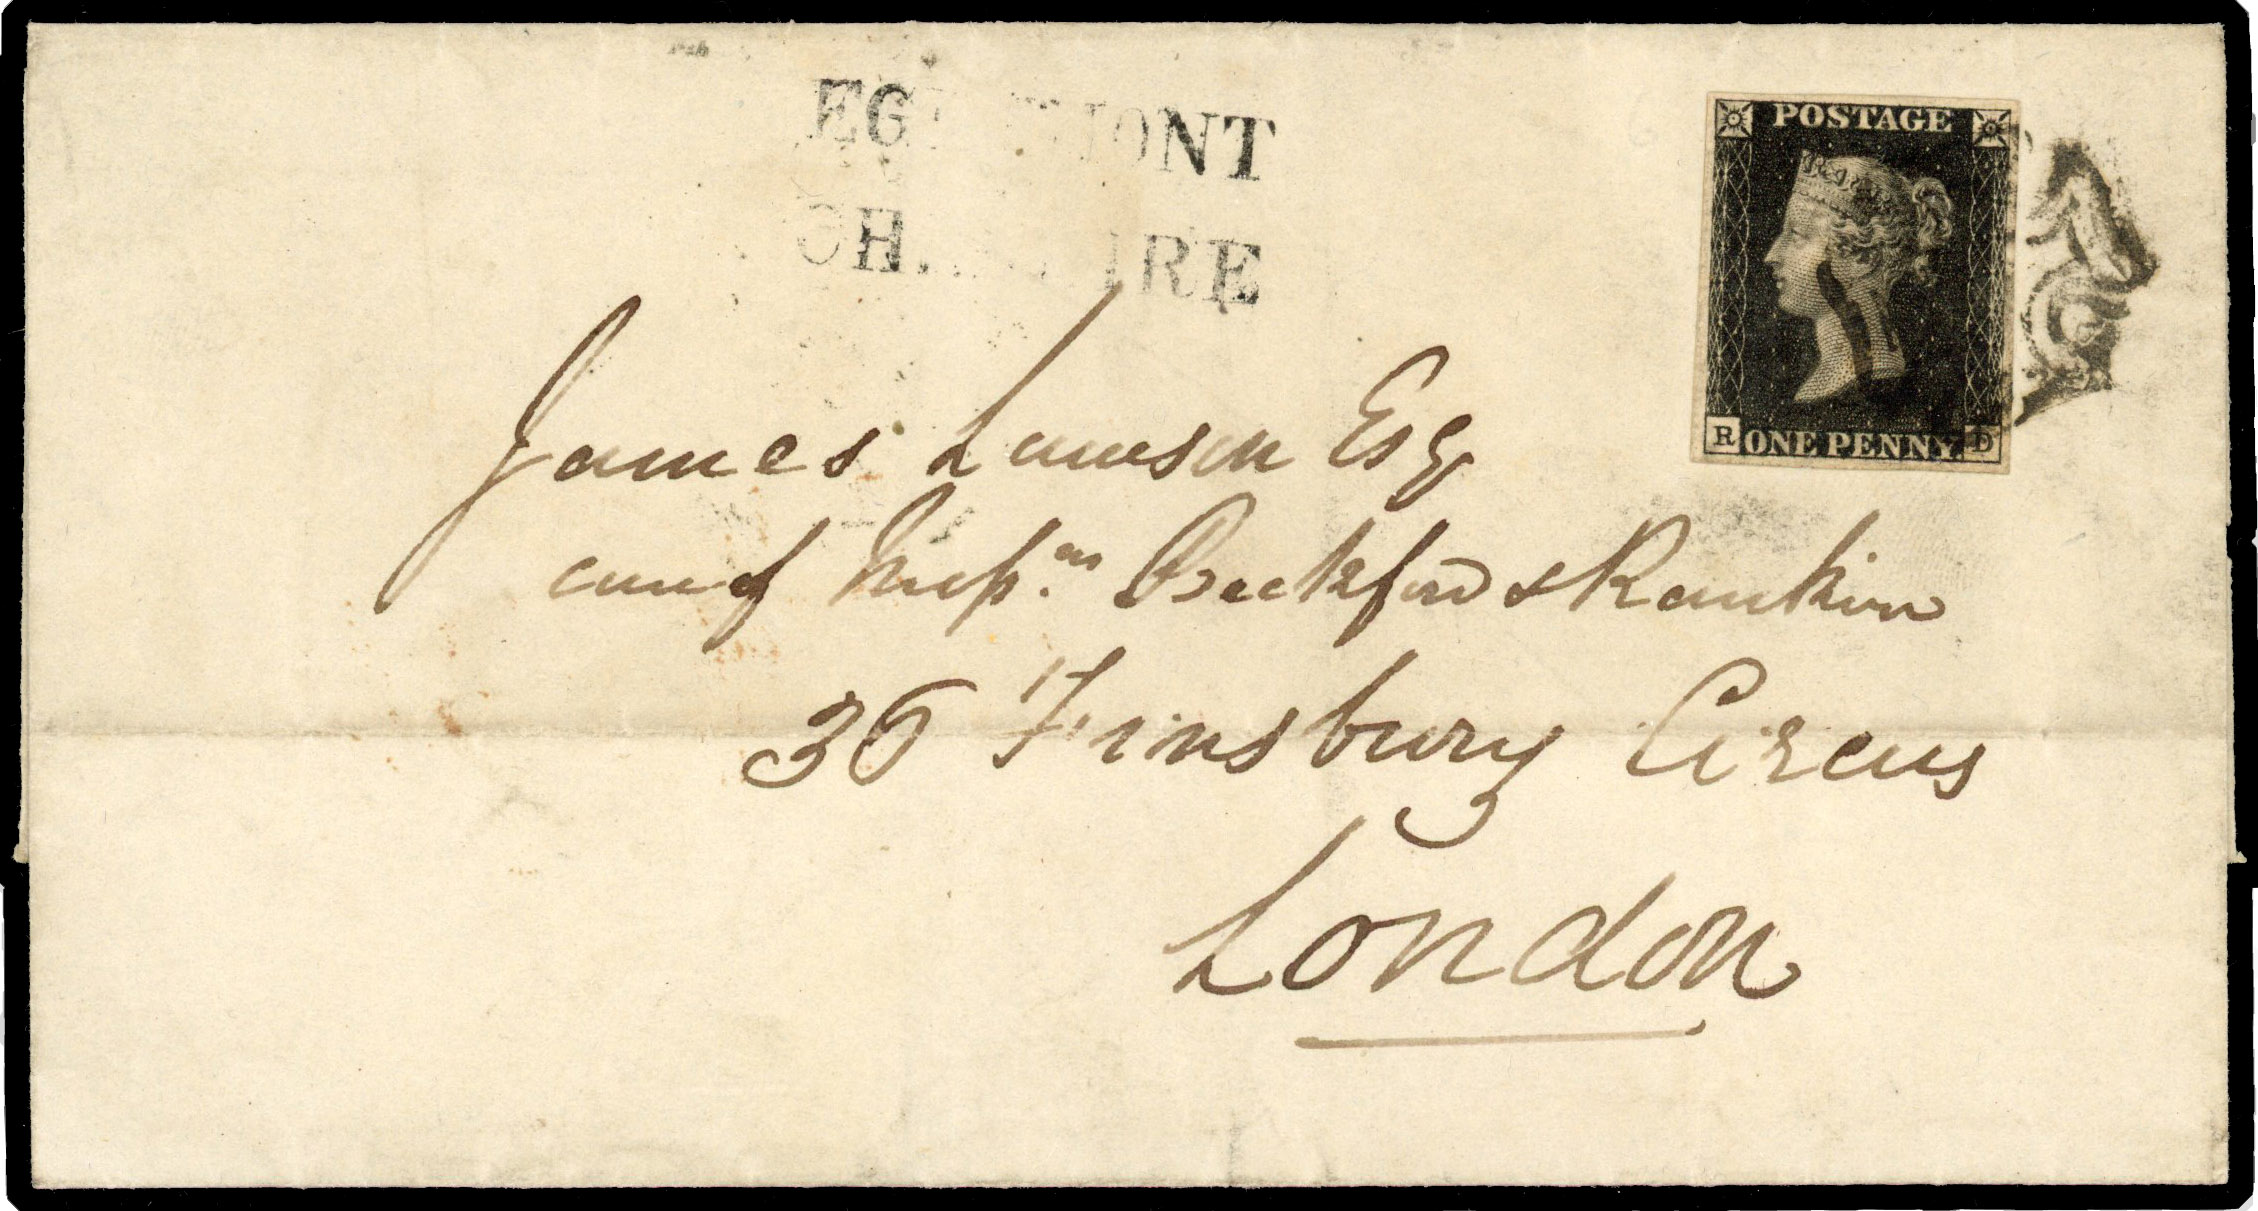 EG MONT
CH. IRE
POSTAGE
R ONE PENNY. D
James Lawson Esq
care of Messrs. Beckford & Rankin
36 Finsbury Circus
London